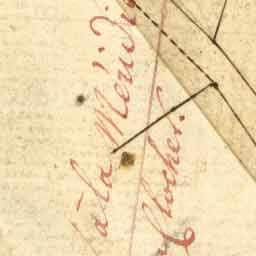 à la Méridi
Clocher.